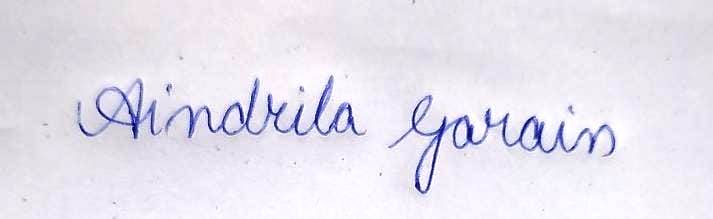 Aindrila Garain